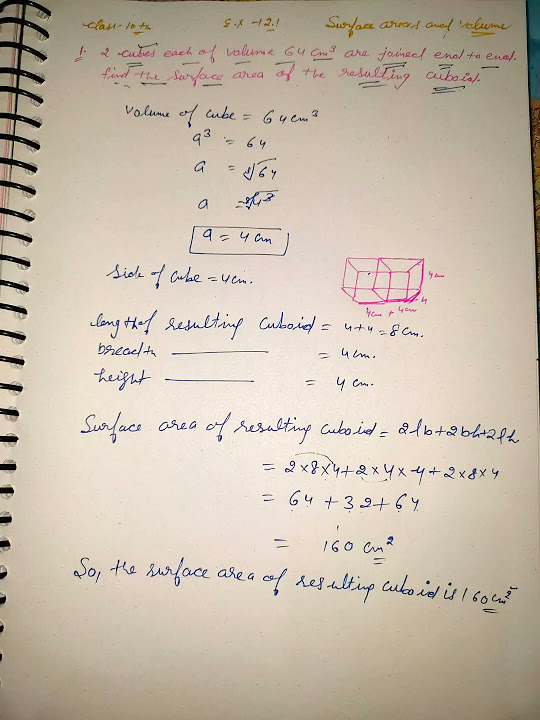 Class-10th Ex-12.1 Surface areas and volume
1. 2 cubes each of volume 64 cm³ are joined end to end.
find the surface area of the resulting cuboid.
Volume of cube = 64cm³
a³ = 64
a = ∛64
a = ∛4³
a = 4 cm
Side of cube = 4cm.
4cm
4
4cm + 4cm
length of resulting cuboid = 4+4 = 8cm.
breadth ——— = 4cm.
height ——— = 4 cm.
Surface area of resulting cuboid = 2lb+2bh+2lh
= 2×8×4+2×4×4+2×8×4
= 64 + 32+64
= 160 cm²
So, the surface area of resulting cuboid is 160cm²